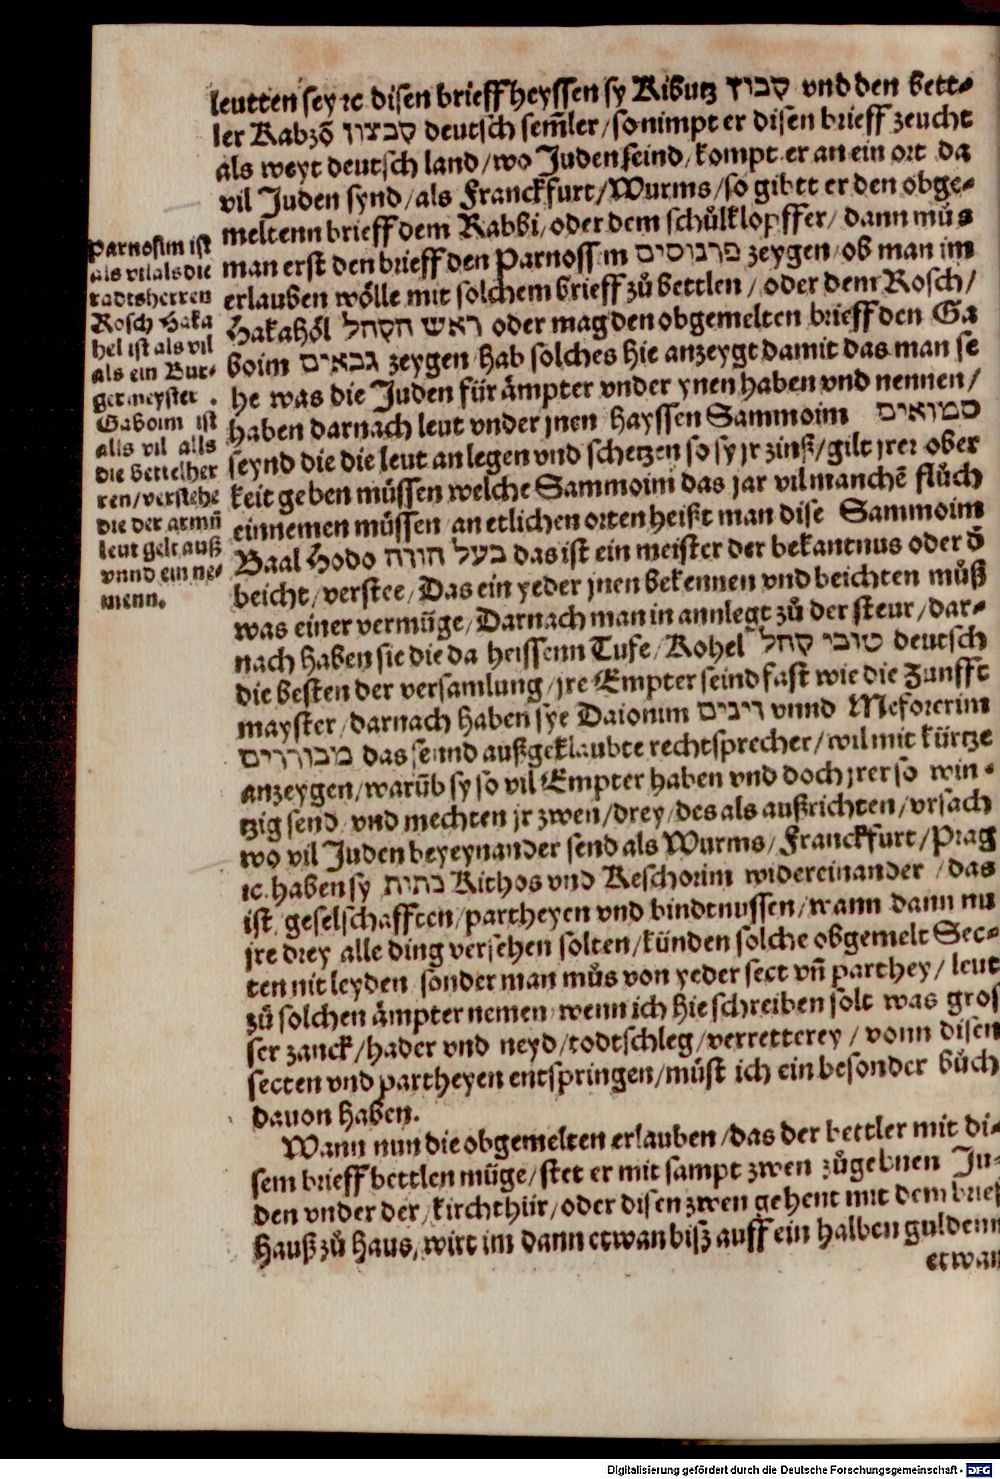 leutten sey ꝛc disen brieff heyssen sy Kibutz קבוץ vnd den bett⸗
ler Kabzō קבצון deutsch sem̄ler / so nimpt er disen brieff zeucht
als weyt deutsch land / wo Juden seind / kompt er an ein ort da
vil Juden synd / als Franckfurt / Wurms / so gibtt er den obge⸗
meltenn brieff dem Rabbi / oder dem schůlklopffer / dann můs
man erst den brieff den Parnossim פרנוסים zeygen / ob man im
erlauben wölle mit solchem brieff zů bettlen / oder dem Rosch /
Hakahől ראש הקהל oder mag den obgemelten brieff den Ga
boim גבאים zeygen / hab solches hie anzeygt damit das man se
he was die Juden für ämpter vnder ynen haben vnd nennen /
haben darnach leut vnder jnen hayssen Sammoim סמואים
seynd die die leut anlegen vnd schetzen so sy jr zinß / gilt jrer ober
keit geben müssen welche Sammoim das jar vil manchē flůch
einnemen müssen / an etlichen orten heißt man dise Sammoim
Baal Hodo בעל הודה das ist ein meister der bekantnus oder d̄
beicht / verstee / Das ein yeder jnen bekennen vnd beichten můß
was einer vermüge / Darnach man in annlegt zů der steur / dar⸗
nach haben sie die da heissenn Tufe / Kohel טובי קהל deutsch
die besten der versamlung / jre Empter seind fast wie die Zunfft
mayster / darnach haben sye Daionim דיינים vnnd Meforerim
מבוררים das seind außgeklaubte rechtsprecher / wil mit kürtze
anzeygen / warūb sy so vil Empter haben vnd doch jrer so win⸗
tzig send / vnd mechten jr zwen / drey / des als außrichten / vrsach
wo vil Juden beyeynander send als Wurms / Franckfurt / Prag
ꝛc. haben sy כתית Kithos vnd Keschorim widereinander / das
ist / geselschafften / partheyen vnd bindtnussen / wann dann nu
jre drey alle ding versehen solten / künden solche obgemelt Sec⸗
ten nit leyden / sonder man můs von yeder sect vn̄ parthey / leut
zů solchen ämpter nemen / wenn ich hie schreiben solt was gros
ser zanck / hader vnd neyd / todtschleg / verretterey / vonn disen
secten vnd partheyen entspringen / müst ich ein besonder bůch
dauon haben.
Wann nun die obgemelten erlauben / das der bettler mit di⸗
sem brieff bettlen müge / stet er mit sampt zwen zůgebnen Ju⸗
den vnder der / kirchthür / oder disen zwen gehent mit dem brief
Hauß zů Haus, wirt im dann etwan biß auff ein halben guldenn
etwan
Parnosim ist
als vil als die
radtsherren
Rosch Haka
hel ist als vil
als ein Bur⸗
germeyster .
Gaboim ist
alls vil alls
die bettelher
ren / verstehe
die der armn̄
leut gelt auß
vnnd ein ne⸗
menn.
Digitalisierung gefördert durch die Deutsche Forschungsgemeinschaft - DFG